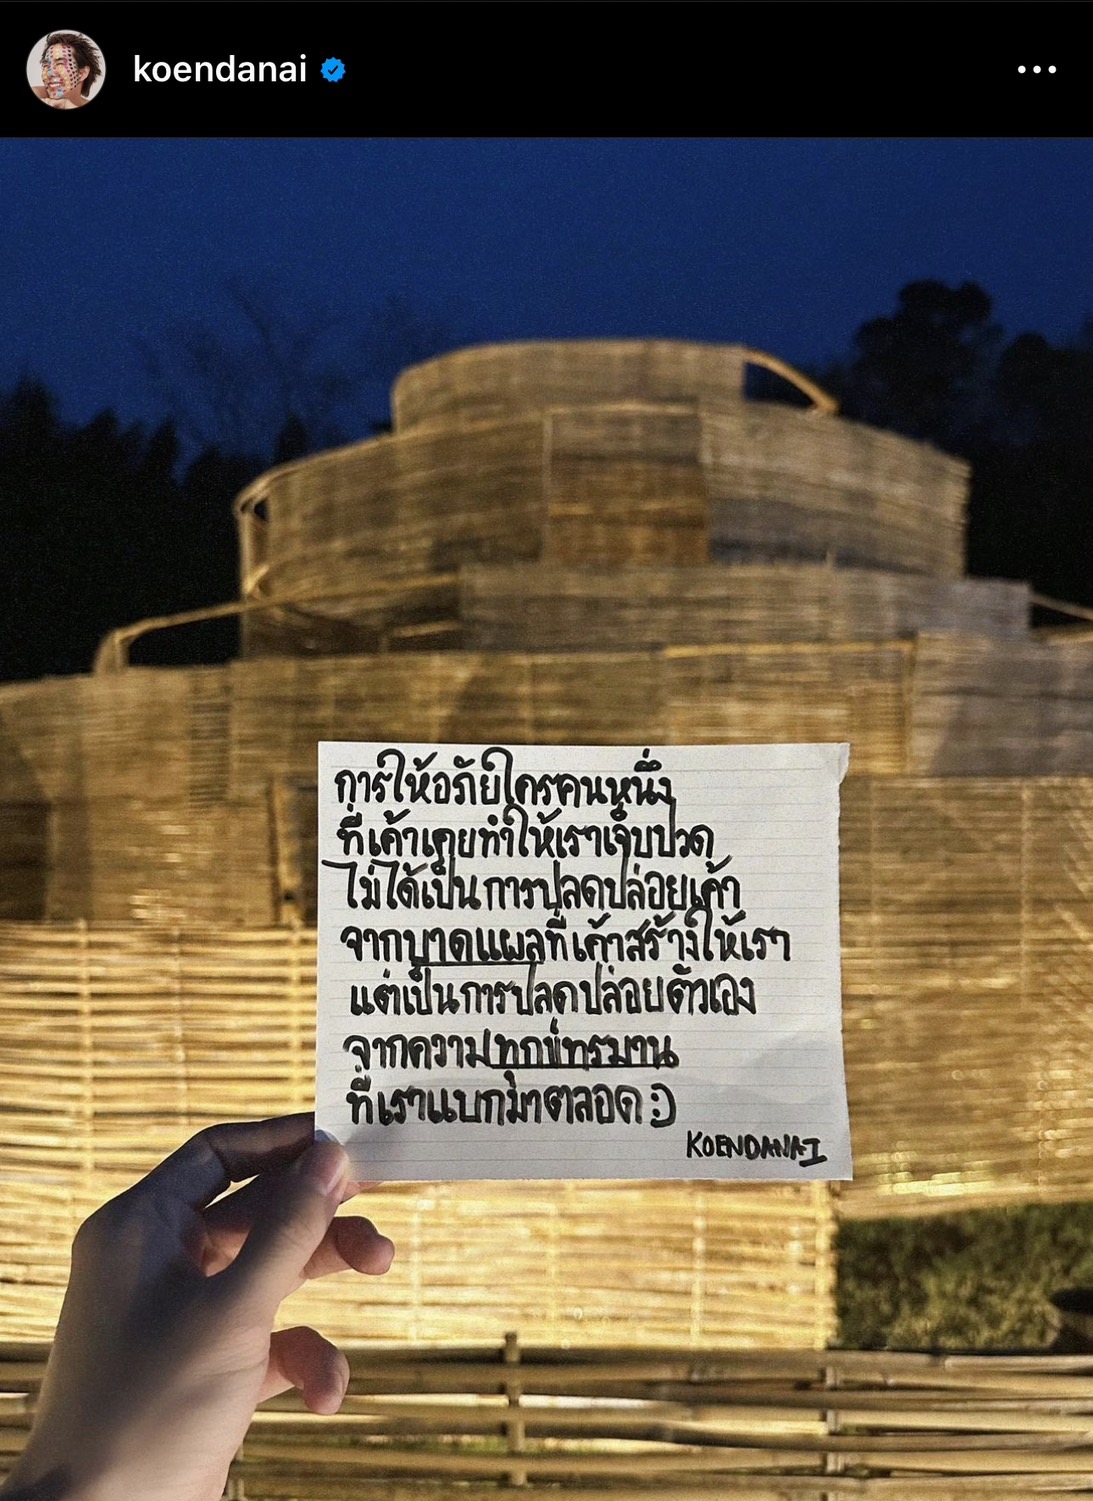 koendanai
การให้อภัยใครคนหนึ่ง
ที่เค้าเคยทำให้เราเจ็บปวด
ไม่ได้เป็นการปลดปล่อยเค้า
จากบาดแผลที่เค้าสร้างให้เรา
แต่เป็นการปลดปล่อยตัวเอง
จากความทุกข์ทรมาน
ที่เราแบกมาตลอด :)
KOENDANAI